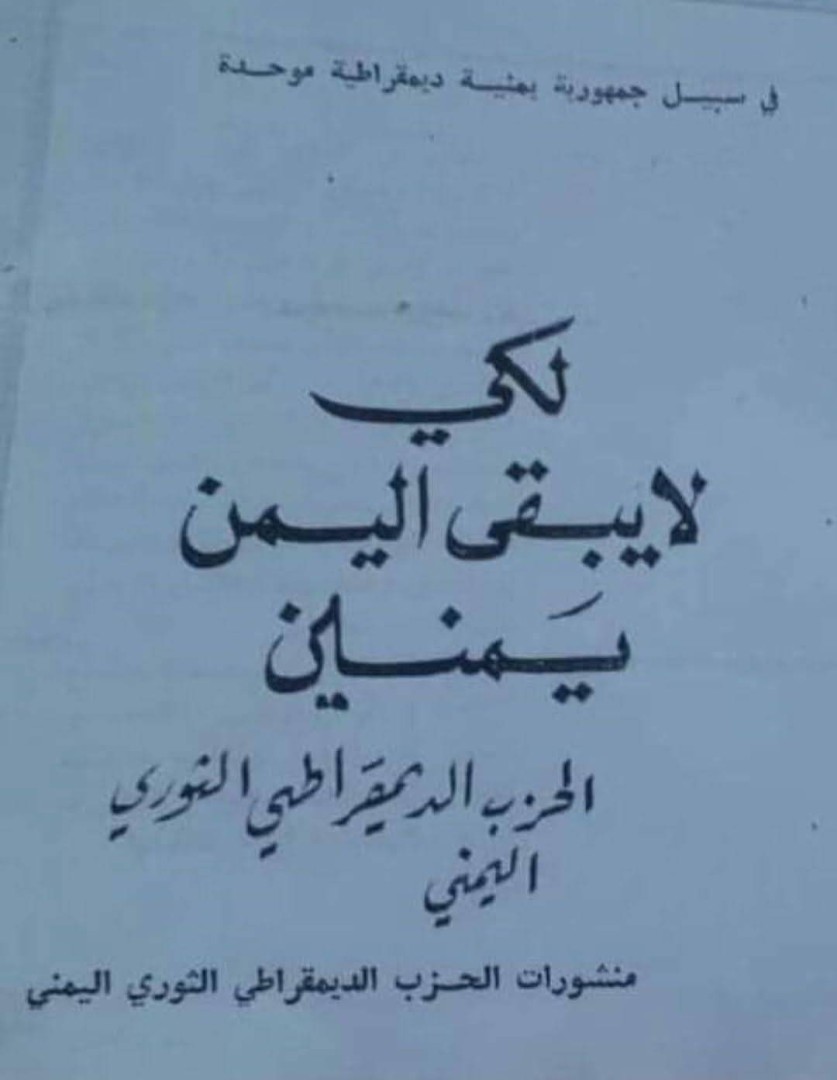 في سبيل جمهورية يمنية ديمقراطية موحدة
لكي
لا يبقى اليمن
يَمنين
الحزب الديمقراطي الثوري
اليمني
منشورات الحزب الديمقراطي الثوري اليمني